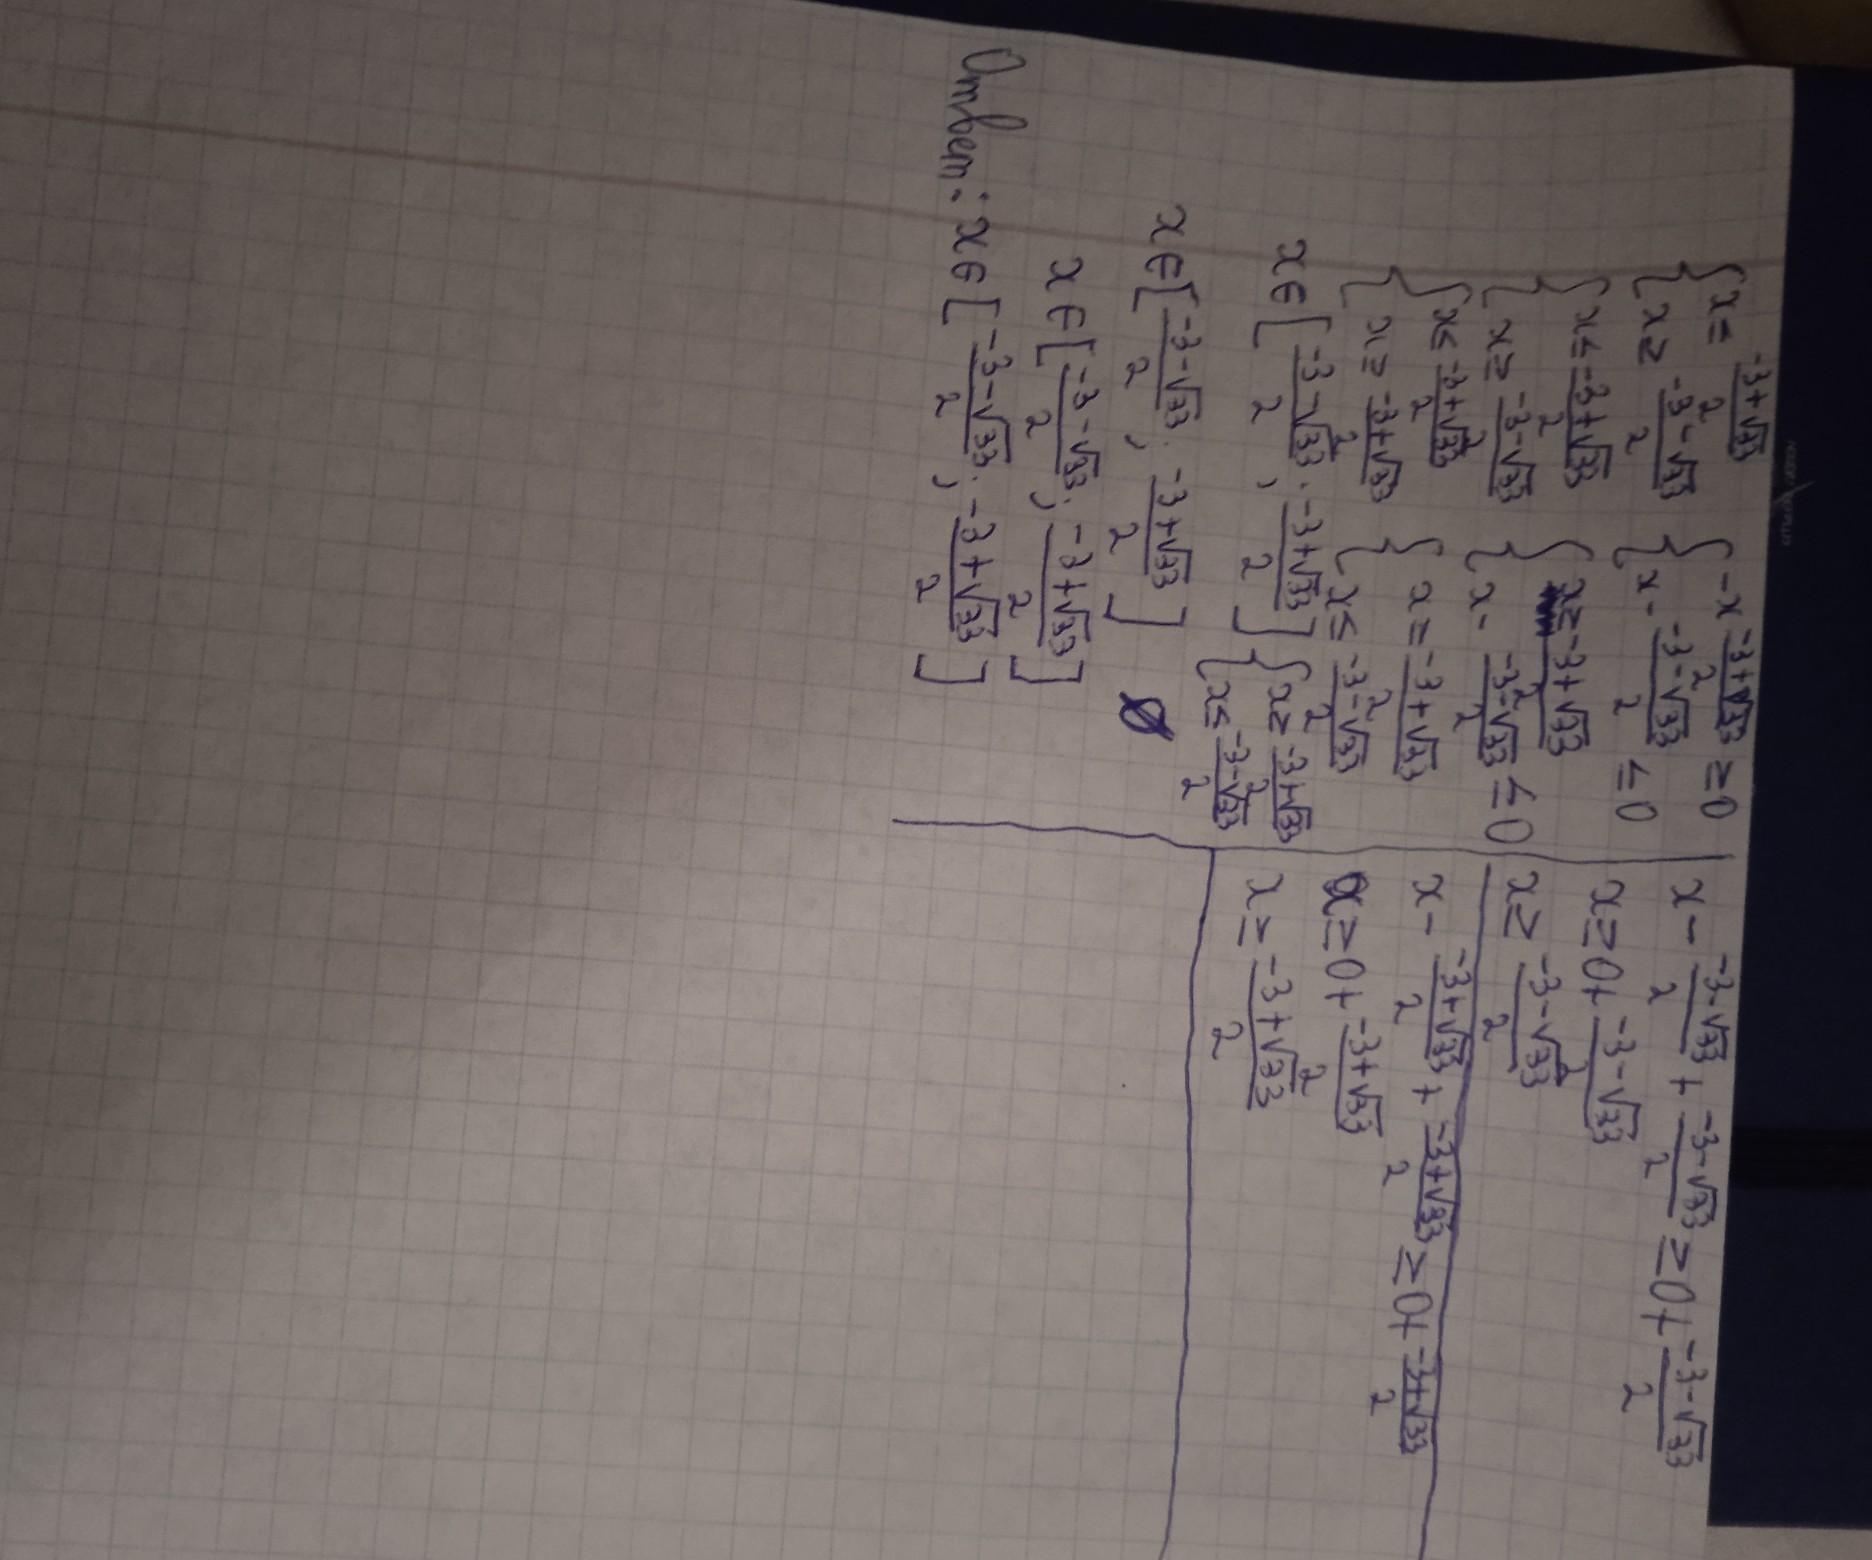 {x = (-3+√33)/2
{x ≥ (-3-√33)/2
{x ≤ (-3+√33)/2
{x ≥ (-3-√33)/2
{x ≤ (-3+√33)/2
{x ≥ (-3+√33)/2
x ∈ [(-3-√33)/2 ; (-3+√33)/2]
x ∈ [(-3-√33)/2 ; (-3+√33)/2]
x ∈ [(-3-√33)/2 ; (-3+√33)/2]
Ответ: x ∈ [(-3-√33)/2 ; (-3+√33)/2]
{-x (-3+√33)/2 ≥ 0
{x - (-3-√33)/2 ≤ 0
{x ≥ (-3+√33)/2
{x - (-3-√33)/2 ≤ 0
{x = (-3+√33)/2
{x ≤ (-3-√33)/2
{x ≥ (-3+√33)/2
{x ≤ (-3-√33)/2
∅
x - (-3-√33)/2 + (-3-√33)/2 ≥ 0 + (-3-√33)/2
x ≥ 0 + (-3-√33)/2
x ≥ (-3-√33)/2
x - (-3+√33)/2 + (-3+√33)/2 ≥ 0 + (-3+√33)/2
x ≥ 0 + (-3+√33)/2
x ≥ (-3+√33)/2